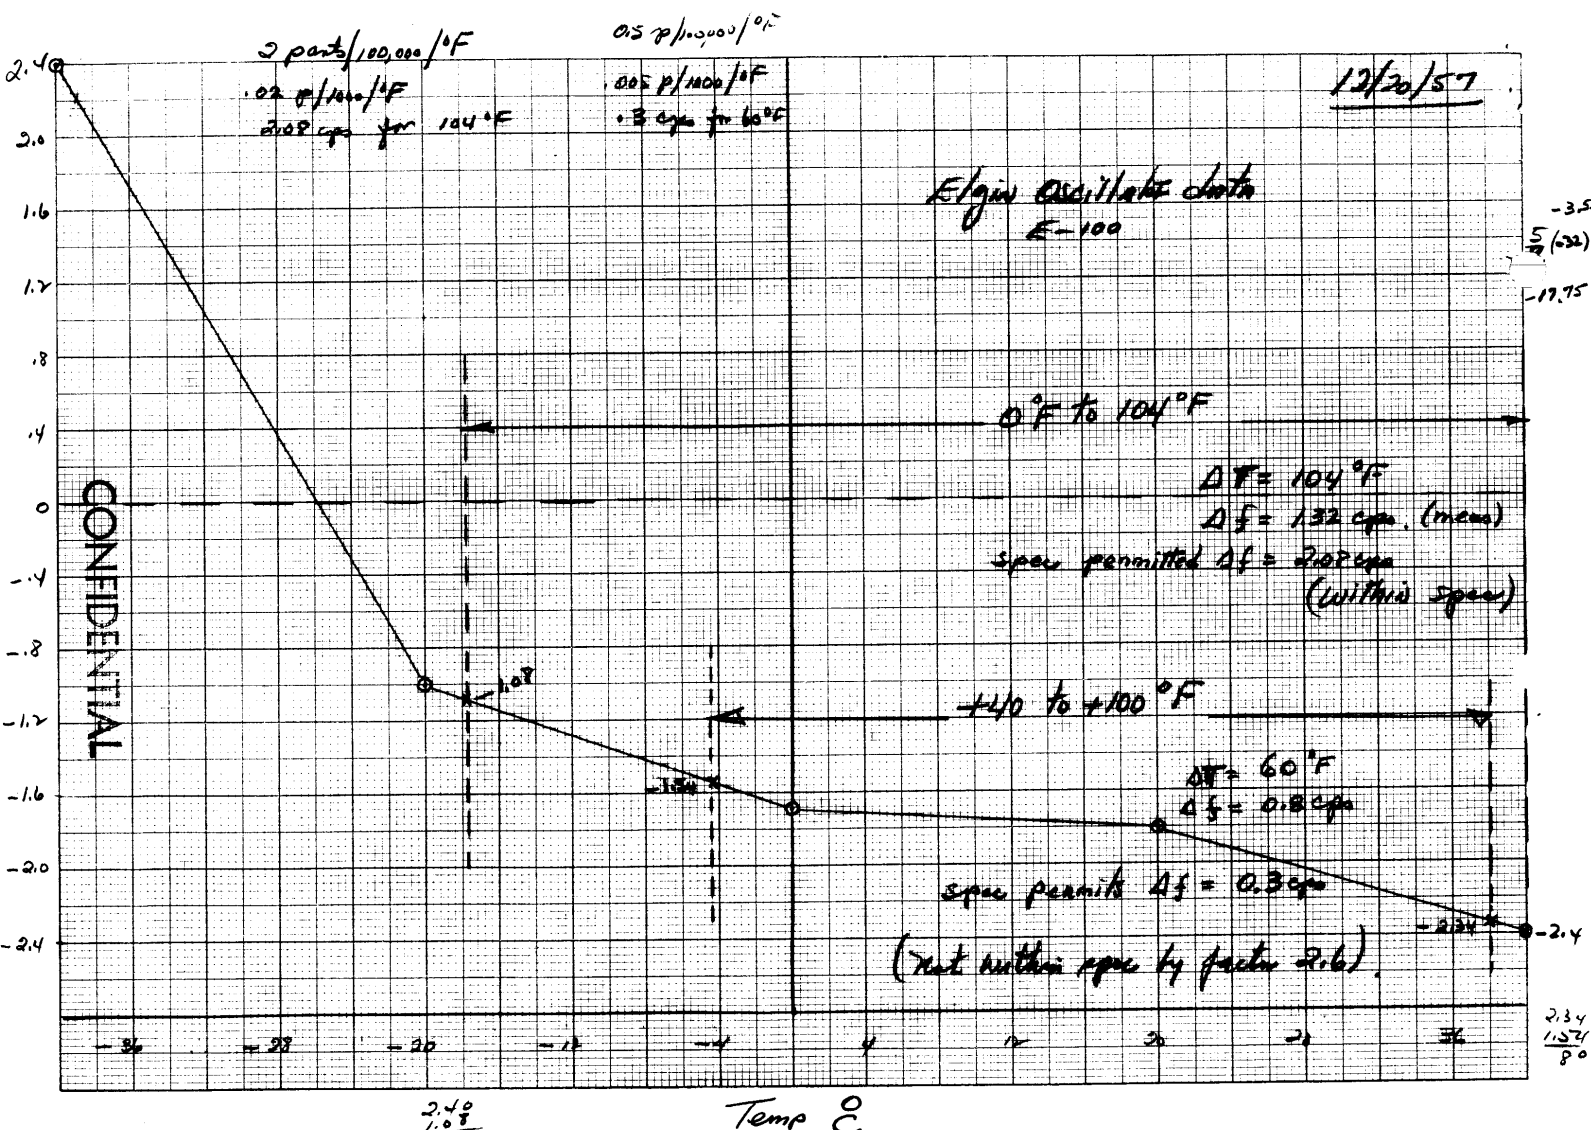 2 parts/100,000/°F
0.5 p/100,000/°F
.02 p/1000/°F
.005 p/1000/°F
2.08 cps for 104°F
.3 cps for 60°F
12/20/57
Elgin Oscillator data
E-100
-3.5
5/9 (-32)
-17.75
2.4
2.0
1.6
1.2
.8
.4
0
-.4
-.8
-1.2
-1.6
-2.0
-2.4
CONFIDENTIAL
0°F to 104°F
ΔT = 104°F
Δf = 1.32 cps. (meas)
spec permitted Δf = 2.08 cps
(within spec)
-1.08
+40 to +100°F
-1.54
ΔT = 60°F
Δf = 0.8 cps
spec permits Δf = 0.3 cps
-2.34
-2.4
(not within spec by factor 2.6)
-36
-28
-20
-12
-4
4
12
20
28
36
2.34
1.54
80
2.40
1.08
Temp °C